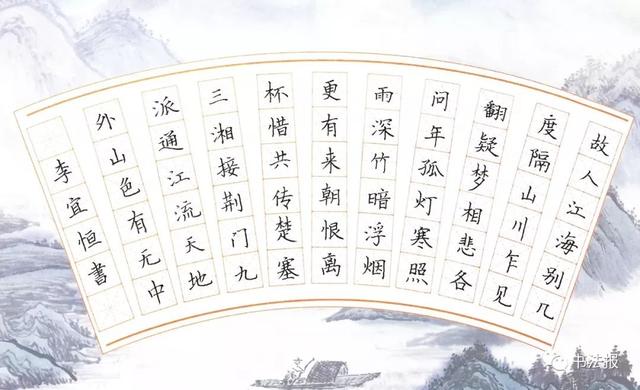 故人江海别几
度隔山川乍见
翻疑梦相悲各
问年孤灯寒照
雨深竹暗浮烟
更有来朝恨离
杯惜共传楚塞
三湘接荆门九
派通江流天地
外山色有无中
李宜恒書
书法报